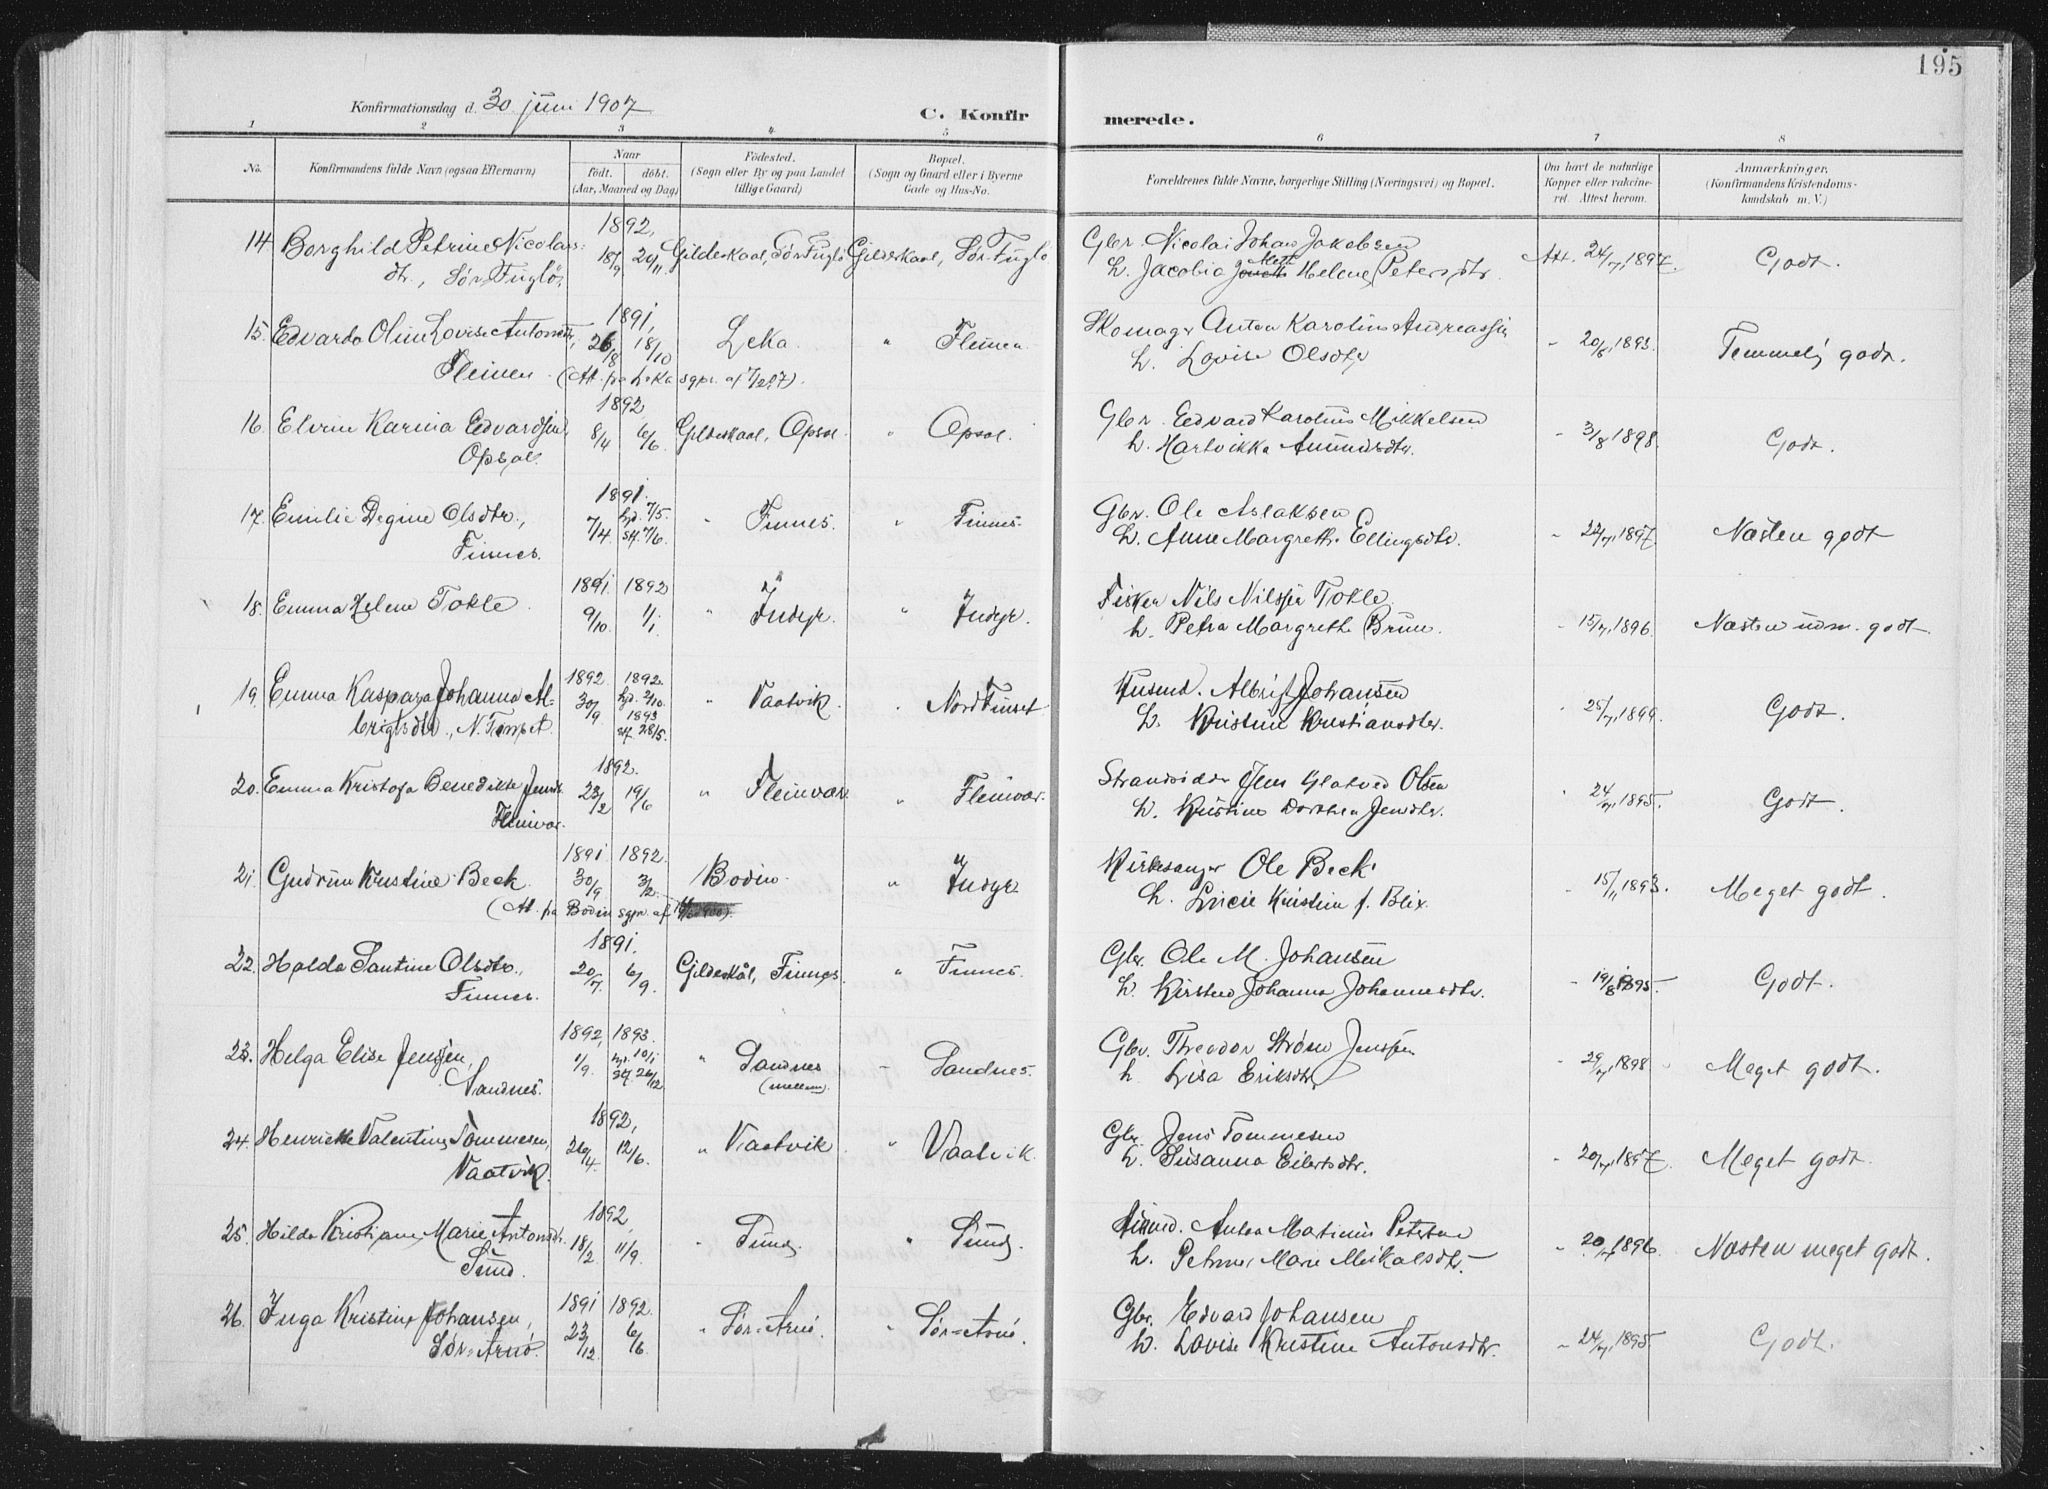 195
Konfirmationsdag d. 30 juni 1907
C. Konfirmerede.
1 2 3 4 5 6 7 8
No. Konfirmandens fulde Navn (ogsaa Efternavn) Naar født. døbt. (Aar, Maaned og Dag) Fødested. (Sogn eller By og paa Landet tillige Gaard) Bopæl. (Sogn og Gaard eller i Byerne Gade og Hus-No. Forældrenes fulde Navne, borgerlige Stilling (Næringsvei) og Bopæl. Om havt de naturlige Kopper eller vakcineret. Attest herom. Anmærkninger. (Konfirmandens Kristendomskundskab m. V.)
1892,
14. Borghild Petrine Nicolais= 18/9 20/11 Gildeskaal, Sør Fuglø Gildeskaal, Sør-Fuglø Gbr. Nicolai Johan Jakobsen Att. 24/7 1897. Godt.
dtr., Sør-Fuglø. h. Jacobia Meth Helene Petersdtr.
1891,
15. Edvarda Oline Lovise Antonsdtr, 26/8 18/10 Leka. " Fleinen. Skomager Anton Karolius Andreassen " 20/6 1893. Temmelig godt.
Fleinen. (At. fra Leka sgpr. af 7/2 07). h. Lovise Olsdtr
1892,
16. Elvine Karina Edvardsen, 8/4 6/6 Gildeskaal, Opsal. " Opsal. Gbr. Edvard Karolius Mikkelsen " 3/8 1898. Godt.
Opsal. h. Hartvikka Amundsdtr.
1891.
17. Emilie Regine Olsdtr., 7/4 hjd. 7/5. stf. 7/6. " Finnes. " Finnes. Gbr. Ole Aslaksen " 22/7 1897 Næsten godt
Finnes. h. Anne Margrethe Ellingsdtr.
1891 1892
18. Emma Helene Tokle. 9/10. 1/1. " Indyr. " Indyr. Fisker Nils Nilssen Tokle. " 15/7 1896. Næsten udm. godt.
h. Petra Margrethe Brun.
1892 1892.
19. Emma Kaspara Johanna Al- 30/9 hjd. 2/10. 1893 stf. 28/5. " Vaatvik. " Nord Finset Husmd. Albrigt Johansen " 25/7 1899. Godt.
brigtsdtr., N. Finset. h. Kristine Kristiansdtr.
1892.
20. Emma Kristofa Benedikte Jensdtr 23/2 19/6 " Fleinvær " Fleinvær. Strandsidder Jens Glatved Olsen " 24/7 1895. Godt.
Fleinvær. h. Kristine Dorthea Jensdtr.
1891 1892.
21. Gudrun Kristine Beck. 30/9 3/2. Bodin. " Indyr. Kirkesanger Ole Beck. " 15/11 1893. Meget godt.
(At. fra Bodin sgpr. af h. Lucie Kristine f. Blix.
1891.
22. Halda Santine Olsdtr., 20/7. 6/9. Gildeskål, Finnes. " Finnes. Gbr. Ole M. Johansen " 19/8 1895. Godt.
Finnes. h. Kirsten Johanna Johannesdtr.
1892, 1893.
23. Helga Elise Jenssen, 1/9. hjd. 10/1 stf. 26/12 " Sandnes (mellem) " Sandnes. Gbr. Theodor Strøm Jenssen " 29/7 1898 Meget godt.
Sandnes. h. Lisa Eriksdtr.
1892,
24. Henriette Valentine Tommesen, 26/4. 12/6. " Vaatvik " Vaatvik. Gbr. Jens Tommesen " 20/7 1897. Meget godt.
Vaatvik. h. Susanna Eilertsdtr.
1892,
25. Hilda Kristiane Marie Antonsdtr. 18/2 11/9. " Sund. " Sund. Husmd. Anton Matinus Petersen " 20/7 1896. Næsten meget godt.
Sund. h. Petrine Marie Mikalsdtr.
1891 1892.
26. Inga Kristine Johansen, 23/12. 6/6. " Sør=Arnø. " Sør=Arnø. Gbr. Edvard Johansen " 24/7 1895. Godt.
Sør=Arnø. h. Lovise Kristine Antonsdtr.